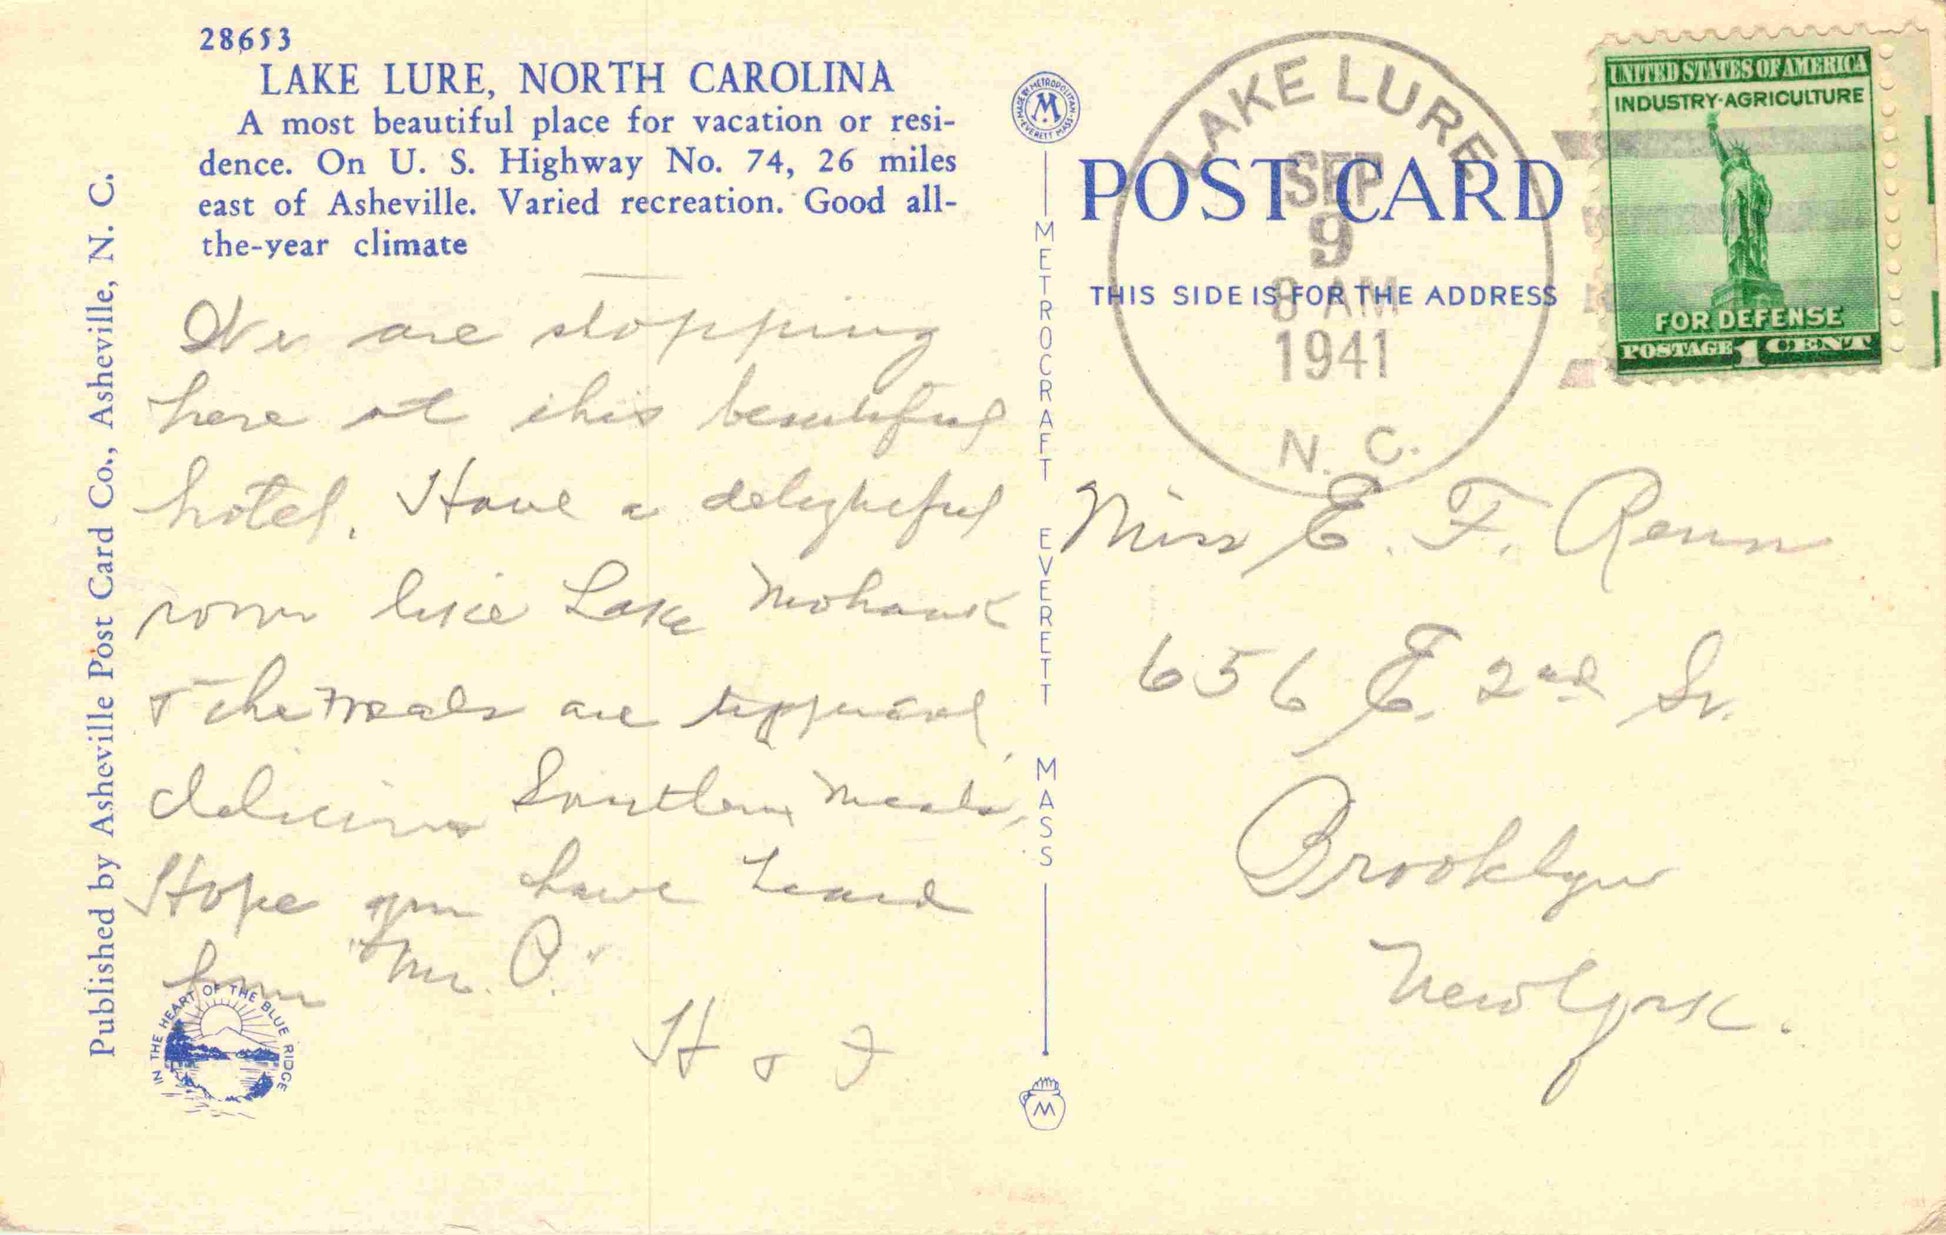 28653
LAKE LURE, NORTH CAROLINA
A most beautiful place for vacation or resi-
dence. On U. S. Highway No. 74, 26 miles
east of Asheville. Varied recreation. Good all-
the-year climate
We are stopping
here at this beautiful
hotel. Have a delightful
room like Lake Mohawk
& the meals are typical
delicious Southern meals,
Hope you have heard
from "Mr. O."
H & J
Published by Asheville Post Card Co., Asheville, N. C.
IN THE HEART OF THE BLUE RIDGE
MADE BY METROPOLITAN
M
EVERETT MASS.
METROCRAFT EVERETT MASS
M
POST CARD
THIS SIDE IS FOR THE ADDRESS
LAKE LURE
SEP
9
8 AM
1941
N. C.
UNITED STATES OF AMERICA
INDUSTRY·AGRICULTURE
FOR DEFENSE
POSTAGE 1 CENT
Miss E. F. Renn
656 E. 2nd St.
Brooklyn
New York.